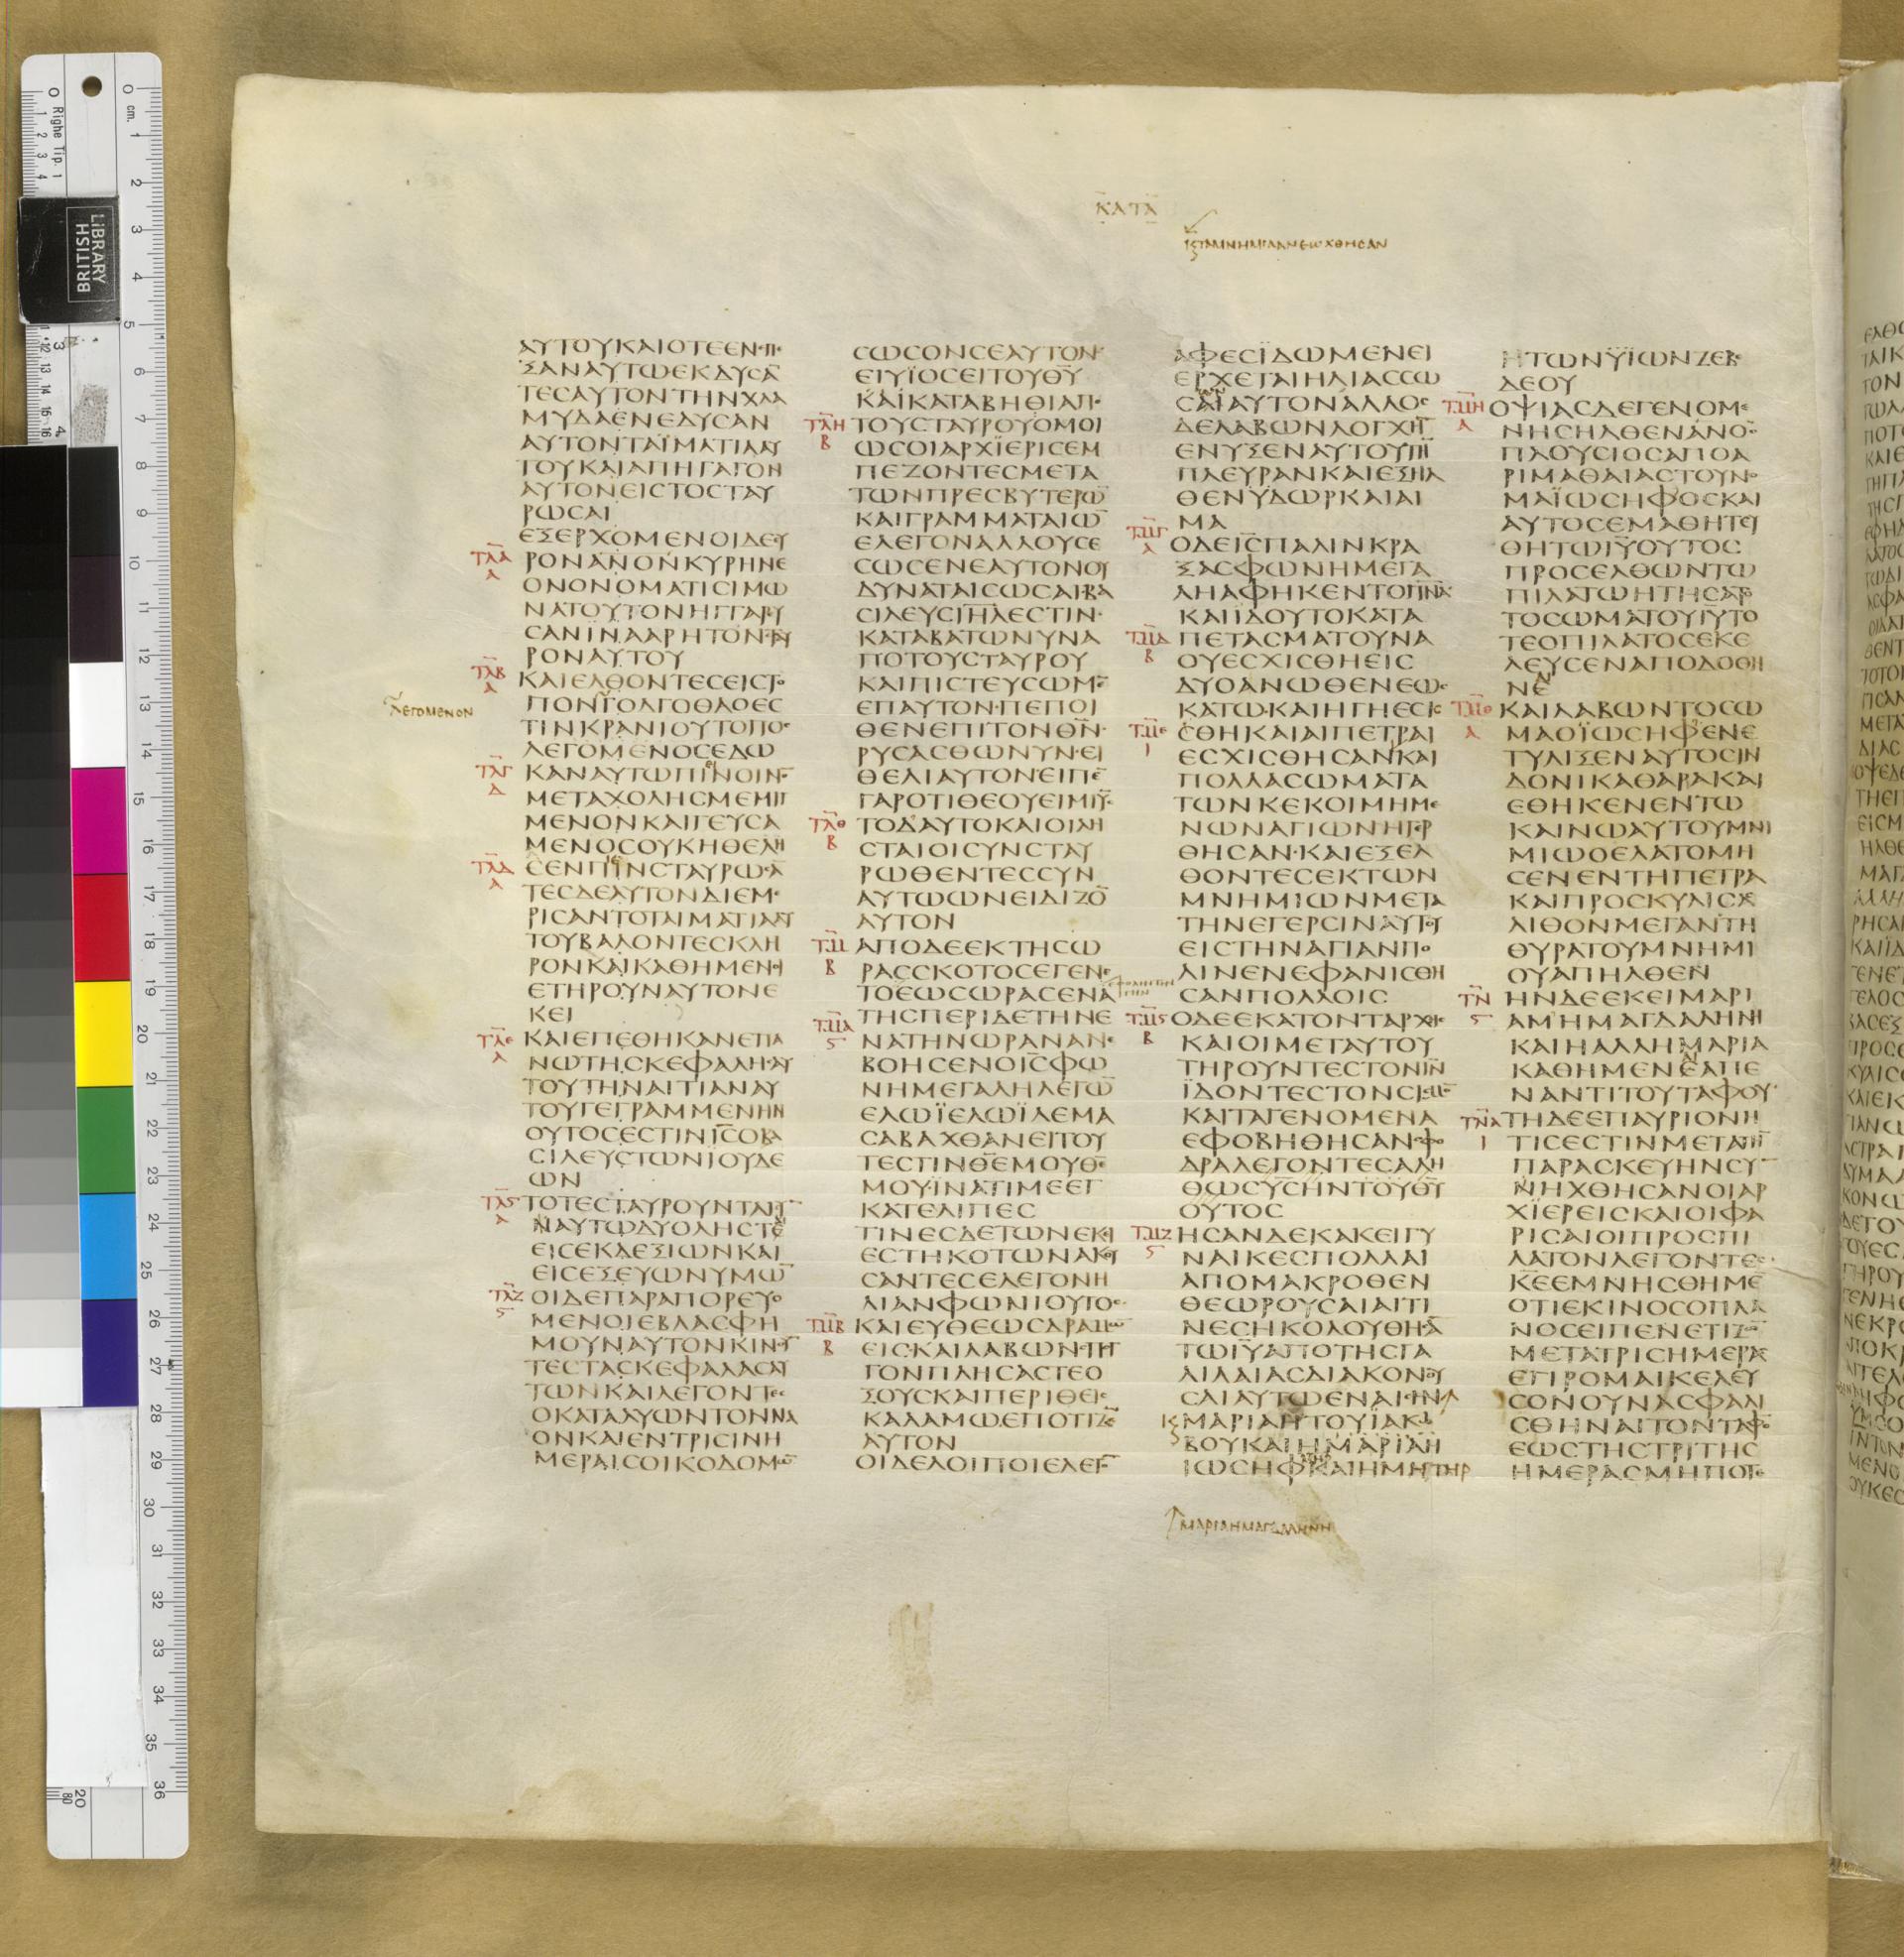 ΚΑΤΑ
ΚΤΑΜΝΗΜΙΑΑΝΕΩΧΘΗCΑΝ
ΑΥΤΟΥΚΑΙΟΤΕΕΝΕΠΕ
ΞΑΝΑΥΤΩΕΚΔΥCΑ̅
ΤΕCΑΥΤΟΝΤΗΝΧΛΑ
ΜΥΔΑΕΝΕΔΥCΑΝ
ΑΥΤΟΝΤΑΪΜΑΤΙΑΑΥ
ΤΟΥΚΑΙΑΠΗΓΑΓΟΝ
ΑΥΤΟΝΕΙCΤΟCΤΑΥ
ΡΩCΑΙ
ΕΞΕΡΧΟΜΕΝΟΙΔΕΥ
ΤΛΑ Α
ΡΟΝΑΝΟΝΚΥΡΗΝΕ
ΟΝΟΝΟΜΑΤΙCΙΜΩ
ΝΑΤΟΥΤΟΝΗΓΓΑΡΕΥ
CΑΝΙΝΑΑΡΗΤΟΝCΤΑΥ
ΡΟΝΑΥΤΟΥ
ΤΛΒ Α
ΚΑΙΕΛΘΟΝΤΕCΕΙCΤΟ
ΛΕΓΟΜΕΝΟΝ
ΠΟΝΓΟΛΓΟΘΑΟΕC
ΤΙΝΚΡΑΝΙΟΥΤΟΠΟC
ΛΕΓΟΜΕΝΟCΕΔΩ
ΤΛΓ Δ
ΚΑΝΑΥΤΩΠΙΝΟΙΝΟ̅
ΜΕΤΑΧΟΛΗCΜΕΜΙΓ
ΜΕΝΟΝΚΑΙΓΕΥCΑ
ΜΕΝΟCΟΥΚΗΘΕΛΗ
ΤΛΔ Α
CΕΝΠΙΝCΤΑΥΡΩCΑ̅
ΤΕCΔΕΑΥΤΟΝΔΙΕΜΕ
ΡΙCΑΝΤΟΤΑΙΜΑΤΙΑΑΥ
ΤΟΥΒΑΛΟΝΤΕCΚΛΗ
ΡΟΝΚΑΙΚΑΘΗΜΕΝΟΙ
ΕΤΗΡΟΥΝΑΥΤΟΝΕ
ΚΕΙ
ΤΛΕ Α
ΚΑΙΕΠΕΘΗΚΑΝΕΠΑ
ΝΩΤΗCΚΕΦΑΛΗCΑΥ
ΤΟΥΤΗΝΑΙΤΙΑΝΑΥ
ΤΟΥΓΕΓΡΑΜΜΕΝΗΝ
ΟΥΤΟCΕCΤΙΝΙ̅C̅ΟΒΑ
CΙΛΕΥCΤΩΝΙΟΥΔΕ
ΩΝ
ΤΛϚ Α
ΤΟΤΕCΤΑΥΡΟΥΝΤΑΙCΥ̅
ΝΑΥΤΩΔΥΟΛΗCΤΕ
ΕΙCΕΚΔΕΞΙΩΝΚΑΙ
ΕΙCΕΞΕΥΩΝΥΜΩ̅
ΤΛΖ Ϛ
ΟΙΔΕΠΑΡΑΠΟΡΕΥΟ
ΜΕΝΟΙΕΒΛΑCΦΗ
ΜΟΥΝΑΥΤΟΝΚΙΝΟΥ̅
ΤΕCΤΑCΚΕΦΑΛΑCΑΥ
ΤΩΝΚΑΙΛΕΓΟΝΤΕC
ΟΚΑΤΑΛΥΩΝΤΟΝΝΑ
ΟΝΚΑΙΕΝΤΡΙCΙΝΗ
ΜΕΡΑΙCΟΙΚΟΔΟΜΩ̅
CΩCΟΝCΕΑΥΤΟΝ·
ΕΙΥΪΟCΕΙΤΟΥΘ̅Υ̅
ΚΑΙΚΑΤΑΒΗΘΙΑΠΟ
ΤΛΗ Β
ΤΟΥCΤΑΥΡΟΥΟΜΟΙ
ΩCΟΙΑΡΧΪΕΡΙCΕΜ
ΠΕΖΟΝΤΕCΜΕΤΑ
ΤΩΝΠΡΕCΒΥΤΕΡΩ̅
ΚΑΙΓΡΑΜΜΑΤΑΙΩ̅
ΕΛΕΓΟΝΑΛΛΟΥCΕ
CΩCΕΝΕΑΥΤΟΝΟΥ
ΔΥΝΑΤΑΙCΩCΑΙΒΑ
CΙΛΕΥCΙ̅Η̅Λ̅ΕCΤΙΝ·
ΚΑΤΑΒΑΤΩΝΥΝΑ
ΠΟΤΟΥCΤΑΥΡΟΥ
ΚΑΙΠΙCΤΕΥCΩΜΕ̅
ΕΠΑΥΤΟΝ·ΠΕΠΟΙ
ΘΕΝΕΠΙΤΟΝΘ̅Ν̅·
ΡΥCΑCΘΩΝΥΝ·ΕΙ
ΘΕΛΙΑΥΤΟΝΕΙΠΕ̅
ΓΑΡΟΤΙΘΕΟΥΕΙΜΙΥ̅C̅
ΤΛΘ Β
ΤΟΔΑΥΤΟΚΑΙΟΙΛΗ
CΤΑΙΟΙCΥΝCΤΑΥ
ΡΩΘΕΝΤΕCCΥΝ
ΑΥΤΩΩΝΕΙΔΙΖΟ̅
ΑΥΤΟΝ
ΤΜ Β
ΑΠΟΔΕΕΚΤΗCΩ
ΡΑCCΚΟΤΟCΕΓΕΝΕ
ΤΟΕΩCΩΡΑCΕΝΑ
ΤΗCΠΕΡΙΔΕΤΗΝΕ
ΤΜΑ Ϛ
ΝΑΤΗΝΩΡΑΝΑΝΕ
ΒΟΗCΕΝΟΙ̅C̅ΦΩ
ΝΗΜΕΓΑΛΗΛΕΓΩ̅
ΕΛΩΪΕΛΩΪΛΕΜΑ
CΑΒΑΧΘΑΝΕΙΤΟΥ
ΤΕCΤΙΝΘ̅Ε̅ΜΟΥΘ̅Ε̅
ΜΟΥΪΝΑΤΙΜΕΕΓ
ΚΑΤΕΛΙΠΕC
ΤΙΝΕCΔΕΤΩΝΕΚΙ
ΕCΤΗΚΟΤΩΝΑΚΟΥ
CΑΝΤΕCΕΛΕΓΟΝΗ
ΛΙΑΝΦΩΝΙΟΥΤΟC
ΤΜΒ Β
ΚΑΙΕΥΘΕΩCΔΡΑΜΩ̅
ΕΙCΚΑΙΛΑΒΩΝCΠΟΓ
ΓΟΝΠΛΗCΑCΤΕΟ
ΞΟΥCΚΑΙΠΕΡΙΘΕΙC
ΚΑΛΑΜΩΕΠΟΤΙΖΕ̅
ΑΥΤΟΝ
ΟΙΔΕΛΟΙΠΟΙΕΛΕΓΟ̅
ΑΦΕCΪΔΩΜΕΝΕΙ
ΕΡΧΕΤΑΙΗΛΙΑCCΩ
CΑΙΑΥΤΟΝΑΛΛΟC
ΔΕΛΑΒΩΝΛΟΓΧΗ̅
ΕΝΥΞΕΝΑΥΤΟΥΤΗ̅
ΠΛΕΥΡΑΝΚΑΙΕΞΗΛ
ΘΕΝΥΔΩΡΚΑΙΑΙ
ΜΑ
ΤΜΓ Α
ΟΔΕΙ̅C̅ΠΑΛΙΝΚΡΑ
ΞΑCΦΩΝΗΜΕΓΑ
ΛΗΑΦΗΚΕΝΤΟΠ̅Ν̅Α̅
ΚΑΙΪΔΟΥΤΟΚΑΤΑ
ΤΜΔ Β
ΠΕΤΑCΜΑΤΟΥΝΑ
ΟΥΕCΧΙCΘΗΕΙC
ΔΥΟΑΝΩΘΕΝΕΩC
ΚΑΤΩ·ΚΑΙΗΓΗΕCΙ
ΤΜΕ Ι
CΘΗΚΑΙΑΙΠΕΤΡΑΙ
ΕCΧΙCΘΗCΑΝΚΑΙ
ΠΟΛΛΑCΩΜΑΤΑ
ΤΩΝΚΕΚΟΙΜΗΜΕ
ΝΩΝΑΓΙΩΝΗΓΕΡ
ΘΗCΑΝ·ΚΑΙΕΞΕΛ
ΘΟΝΤΕCΕΚΤΩΝ
ΜΝΗΜΙΩΝΜΕΤΑ
ΤΗΝΕΓΕΡCΙΝΑΥΤΟΥ
ΕΙCΤΗΝΑΓΙΑΝΠΟ
ΛΙΝΕΝΕΦΑΝΙCΘΗ
CΑΝΠΟΛΛΟΙC
ΤΜϚ Β
ΟΔΕΕΚΑΤΟΝΤΑΡΧΗC
ΚΑΙΟΙΜΕΤΑΥΤΟΥ
ΤΗΡΟΥΝΤΕCΤΟΝΙ̅Ν̅
ΪΔΟΝΤΕCΤΟΝCΙCΜΟ̅
ΚΑΙΤΑΓΕΝΟΜΕΝΑ
ΕΦΟΒΗΘΗCΑΝCΦΟ
ΔΡΑΛΕΓΟΝΤΕCΑΛΗ
ΘΩCΥ̅C̅ΗΝΤΟΥΘ̅Υ̅
ΟΥΤΟC
ΤΜΖ Ϛ
ΗCΑΝΔΕΚΑΚΕΙΓΥ
ΝΑΙΚΕCΠΟΛΛΑΙ
ΑΠΟΜΑΚΡΟΘΕΝ
ΘΕΩΡΟΥCΑΙΑΙΤΙ
ΝΕCΗΚΟΛΟΥΘΗCΑ̅
ΤΩΙ̅Υ̅ΑΠΟΤΗCΓΑ
ΛΙΛΑΙΑCΔΙΑΚΟΝΟΥ
CΑΙΑΥΤΩΕΝΑΙCΗΝ
ΜΑΡΙΑΗΤΟΥΪΑΚΩ
ΒΟΥΚΑΙΗΜΑΡΙΑΗ
ΙΩCΗΦΚΑΙΗΜΗΤΗΡ
ΜΑΡΙΑΗΜΑΓΔΑΛΗΝΗ
ΗΤΩΝΫΪΩΝΖΕΒΕ
ΔΕΟΥ
ΤΜΗ Α
ΟΨΙΑCΔΕΓΕΝΟΜΕ
ΝΗCΗΛΘΕΝΑΝΟC
ΠΛΟΥCΙΟCΑΠΟΑ
ΡΙΜΑΘΑΙΑCΤΟΥΝΟ
ΜΑΪΩCΗΦΟCΚΑΙ
ΑΥΤΟCΕΜΑΘΗΤΕΥ
ΘΗΤΩΙ̅Υ̅ΟΥΤΟC
ΠΡΟCΕΛΘΩΝΤΩ
ΠΙΛΑΤΩΗΤΗCΑΤΟ
ΤΟCΩΜΑΤΟΥΙ̅Υ̅ΤΟ
ΤΕΟΠΙΛΑΤΟCΕΚΕ
ΛΕΥCΕΝΑΠΟΔΟΘΗ
ΝΕ
ΤΜΘ Α
ΚΑΙΛΑΒΩΝΤΟCΩ
ΜΑΟΪΩCΗΦΕΝΕ
ΤΥΛΙΞΕΝΑΥΤΟCΙΝ
ΔΟΝΙΚΑΘΑΡΑΚΑΙ
ΕΘΗΚΕΝΕΝΤΩ
ΚΑΙΝΩΑΥΤΟΥΜΝΗ
ΜΙΩΟΕΛΑΤΟΜΗ
CΕΝΕΝΤΗΠΕΤΡΑ
ΚΑΙΠΡΟCΚΥΛΙCΑC
ΛΙΘΟΝΜΕΓΑΝΤΗ
ΘΥΡΑΤΟΥΜΝΗΜΙ
ΟΥΑΠΗΛΘΕΝ
ΤΝ Ϛ
ΗΝΔΕΕΚΕΙΜΑΡΙ
ΑΜΗΜΑΓΔΑΛΗΝΗ
ΚΑΙΗΑΛΛΗΜΑΡΙΑ
ΚΑΘΗΜΕΝΕΑΠΕ
ΝΑΝΤΙΤΟΥΤΑΦΟΥ·
ΤΝΑ Ι
ΤΗΔΕΕΠΑΥΡΙΟΝΗ
ΤΙCΕCΤΙΝΜΕΤΑΤΗ̅
ΠΑΡΑCΚΕΥΗΝCΥ
ΝΗΧΘΗCΑΝΟΙΑΡ
ΧΪΕΡΕΙCΚΑΙΟΙΦΑ
ΡΙCΑΙΟΙΠΡΟCΠΙ
ΛΑΤΟΝΛΕΓΟΝΤΕC
Κ̅Ε̅ΕΜΝΗCΘΗΜΕ̅
ΟΤΙΕΚΙΝΟCΟΠΛΑ
ΝΟCΕΙΠΕΝΕΤΙΖΩ̅
ΜΕΤΑΤΡΙCΗΜΕΡΑC
ΕΓΙΡΟΜΑΙΚΕΛΕΥ
CΟΝΟΥΝΑCΦΑΛΙ
CΘΗΝΑΙΤΟΝΤΑΦΟ̅
ΕΩCΤΗCΤΡΙΤΗC
ΗΜΕΡΑCΜΗΠΟΤΕ
0 cm. 1
2
3
4
5
6
7
8
9
10
11
12
13
14
15
16
17
18
19
20
21
22
23
24
25
26
27
28
29
30
31
32
33
34
35
36
BRITISH
LIBRARY
0 Righe Tip. 1